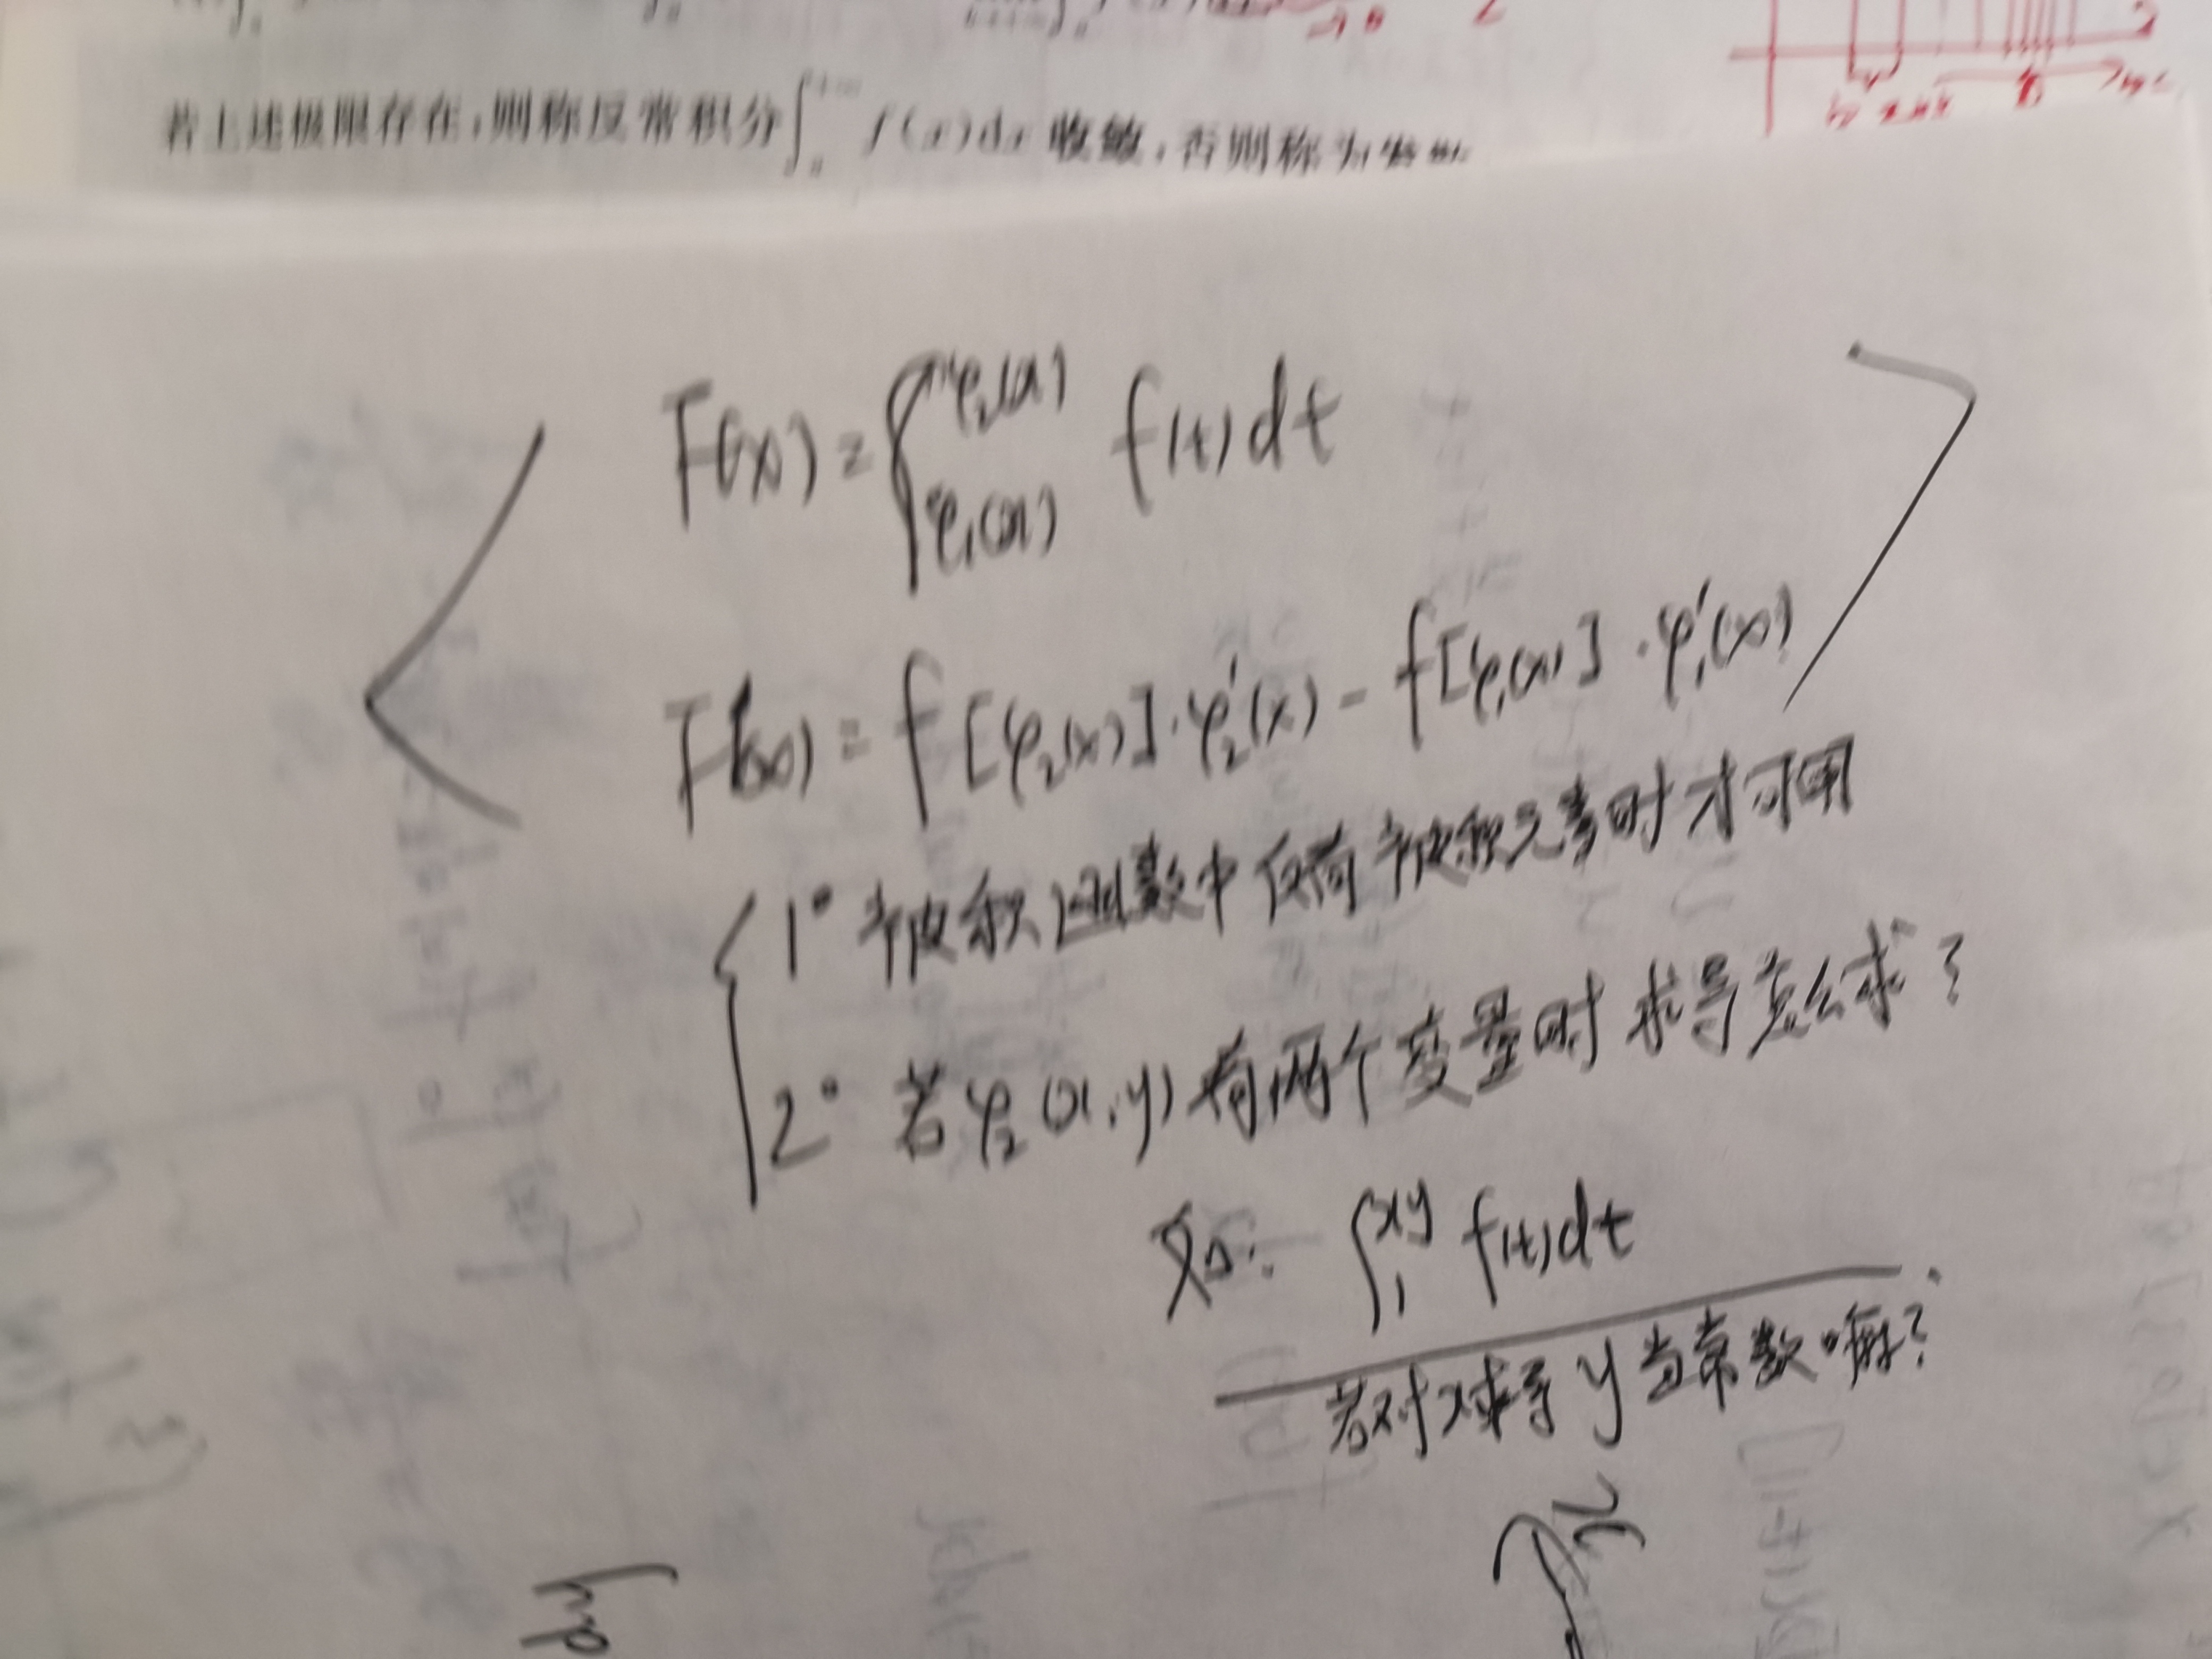 若上述极限存在,则称反常积分∫ₐ^{+∞} f(x)dx 收敛,否则称为发散
F(x) = ∫_{φ₁(x)}^{φ₂(x)} f(t)dt
F'(x) = f[φ₂(x)]·φ₂'(x) - f[φ₁(x)]·φ₁'(x)
1° 被积函数中仅有被积元素时才可用
2° 若φ₂(x,y)有两个变量时求导怎么求?
如: ∫₁^{xy} f(t)dt
若对x求导y当常数嘛?